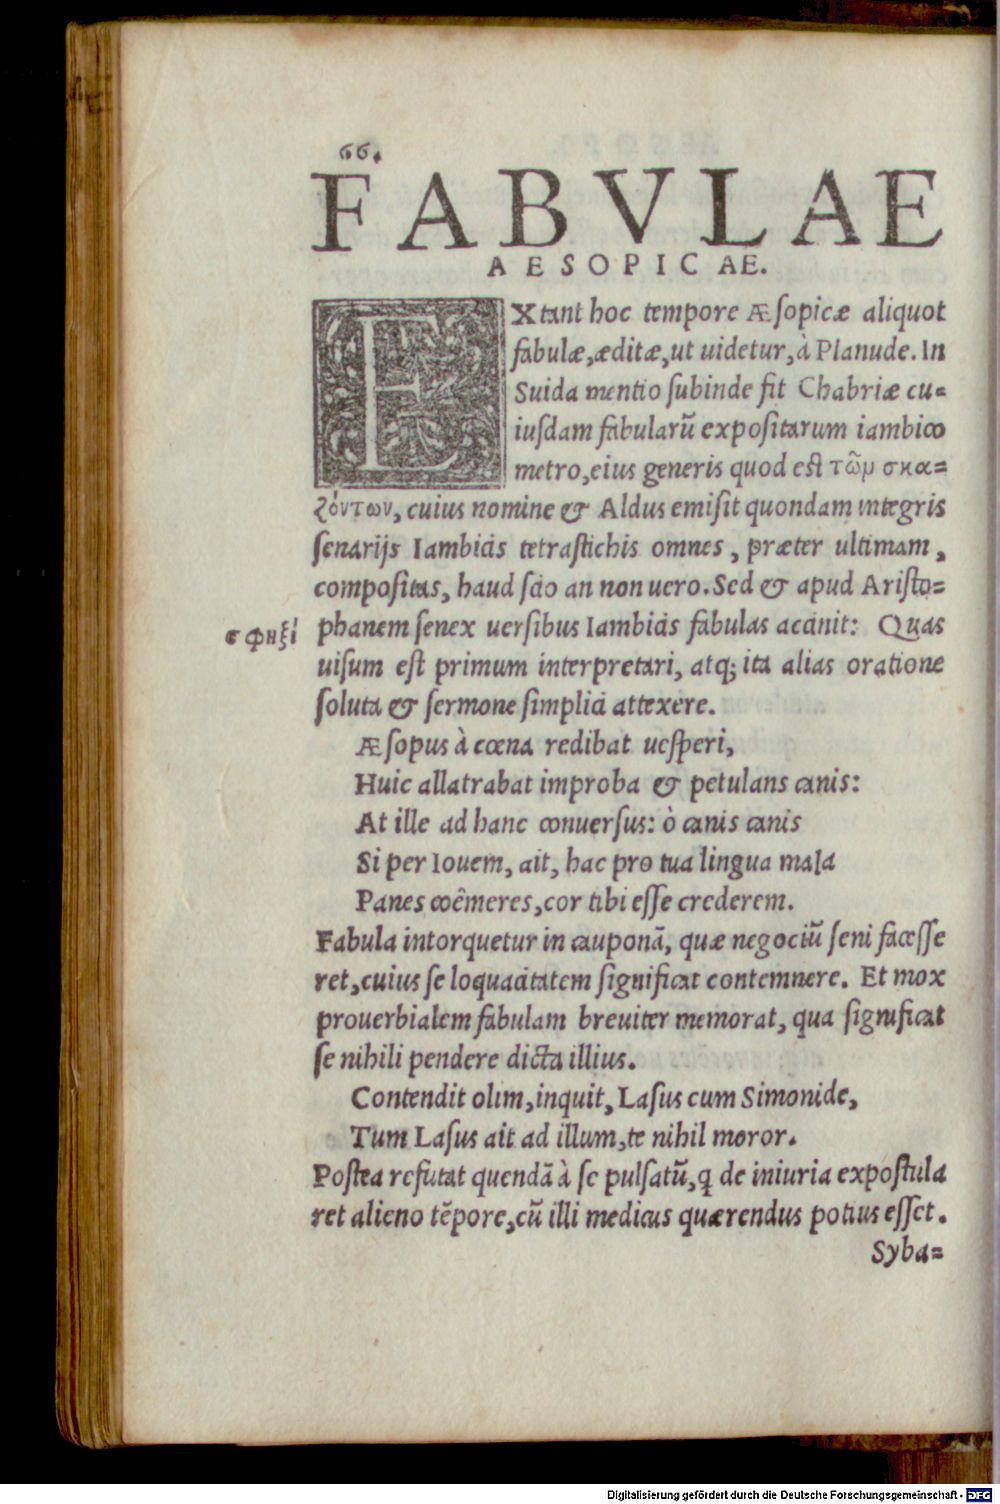 66.
FABVLAE
AESOPICAE.
EXtant hoc tempore Æsopicæ aliquot
fabulæ, æditæ, ut uidetur, à Planude. In
Suida mentio subinde fit Chabriæ cu=
iusdam fabularũ expositarum iambico
metro, eius generis quod est τῶν σκα=
ζόντων, cuius nomine & Aldus emisit quondam integris
senarijs Iambicis tetrastichis omnes, præter ultimam,
compositas, haud scio an non uero. Sed & apud Aristo=
σφηξί
phanem senex uersibus Iambicis fabulas accinit: Quas
uisum est primum interpretari, atq; ita alias oratione
soluta & sermone simplici attexere.
Æsopus à cœna redibat uesperi,
Huic allatrabat improba & petulans canis:
At ille ad hanc conuersus: ò canis canis
Si per Iouem, ait, hac pro tua lingua mala
Panes coêmeres, cor tibi esse crederem.
Fabula intorquetur in cauponã, quæ negociũ seni facesse
ret, cuius se loquacitatem significat contemnere. Et mox
prouerbialem fabulam breuiter memorat, qua significat
se nihili pendere dicta illius.
Contendit olim, inquit, Lasus cum Simonide,
Tum Lasus ait ad illum, te nihil moror.
Postea refutat quendã à se pulsatũ, ꝗ de iniuria expostula
ret alieno tẽpore, cũ illi medicus quærendus potius esset.
Syba=
Digitalisierung gefördert durch die Deutsche Forschungsgemeinschaft - DFG